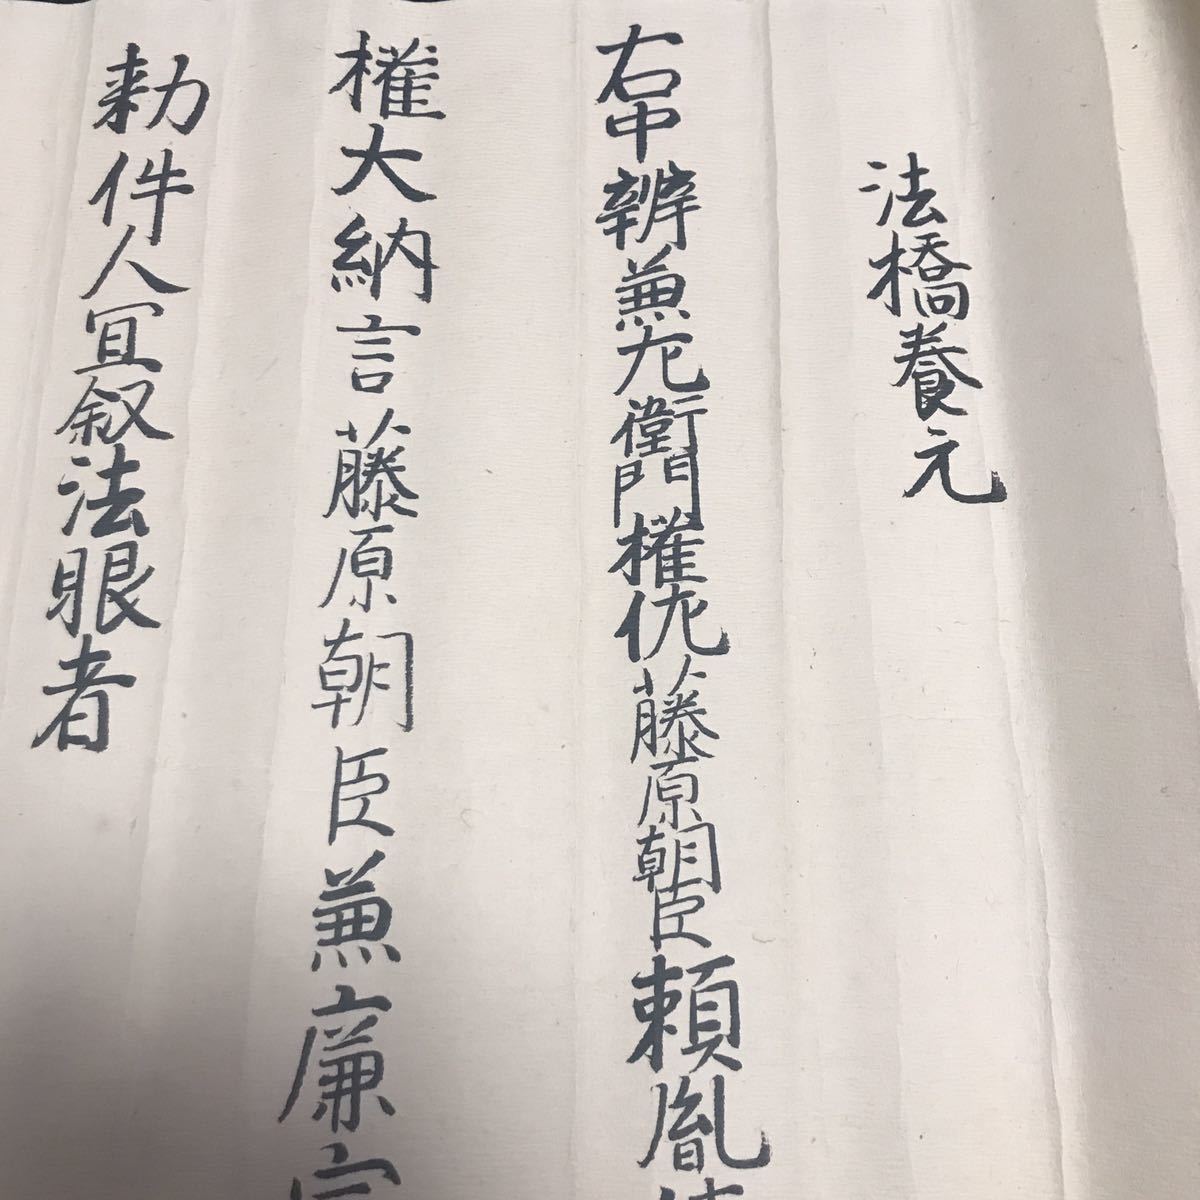 法橋養元
右中辨兼左衛門権佐藤原朝臣頼胤
権大納言藤原朝臣兼廉宣
勅件人宜叙法眼者